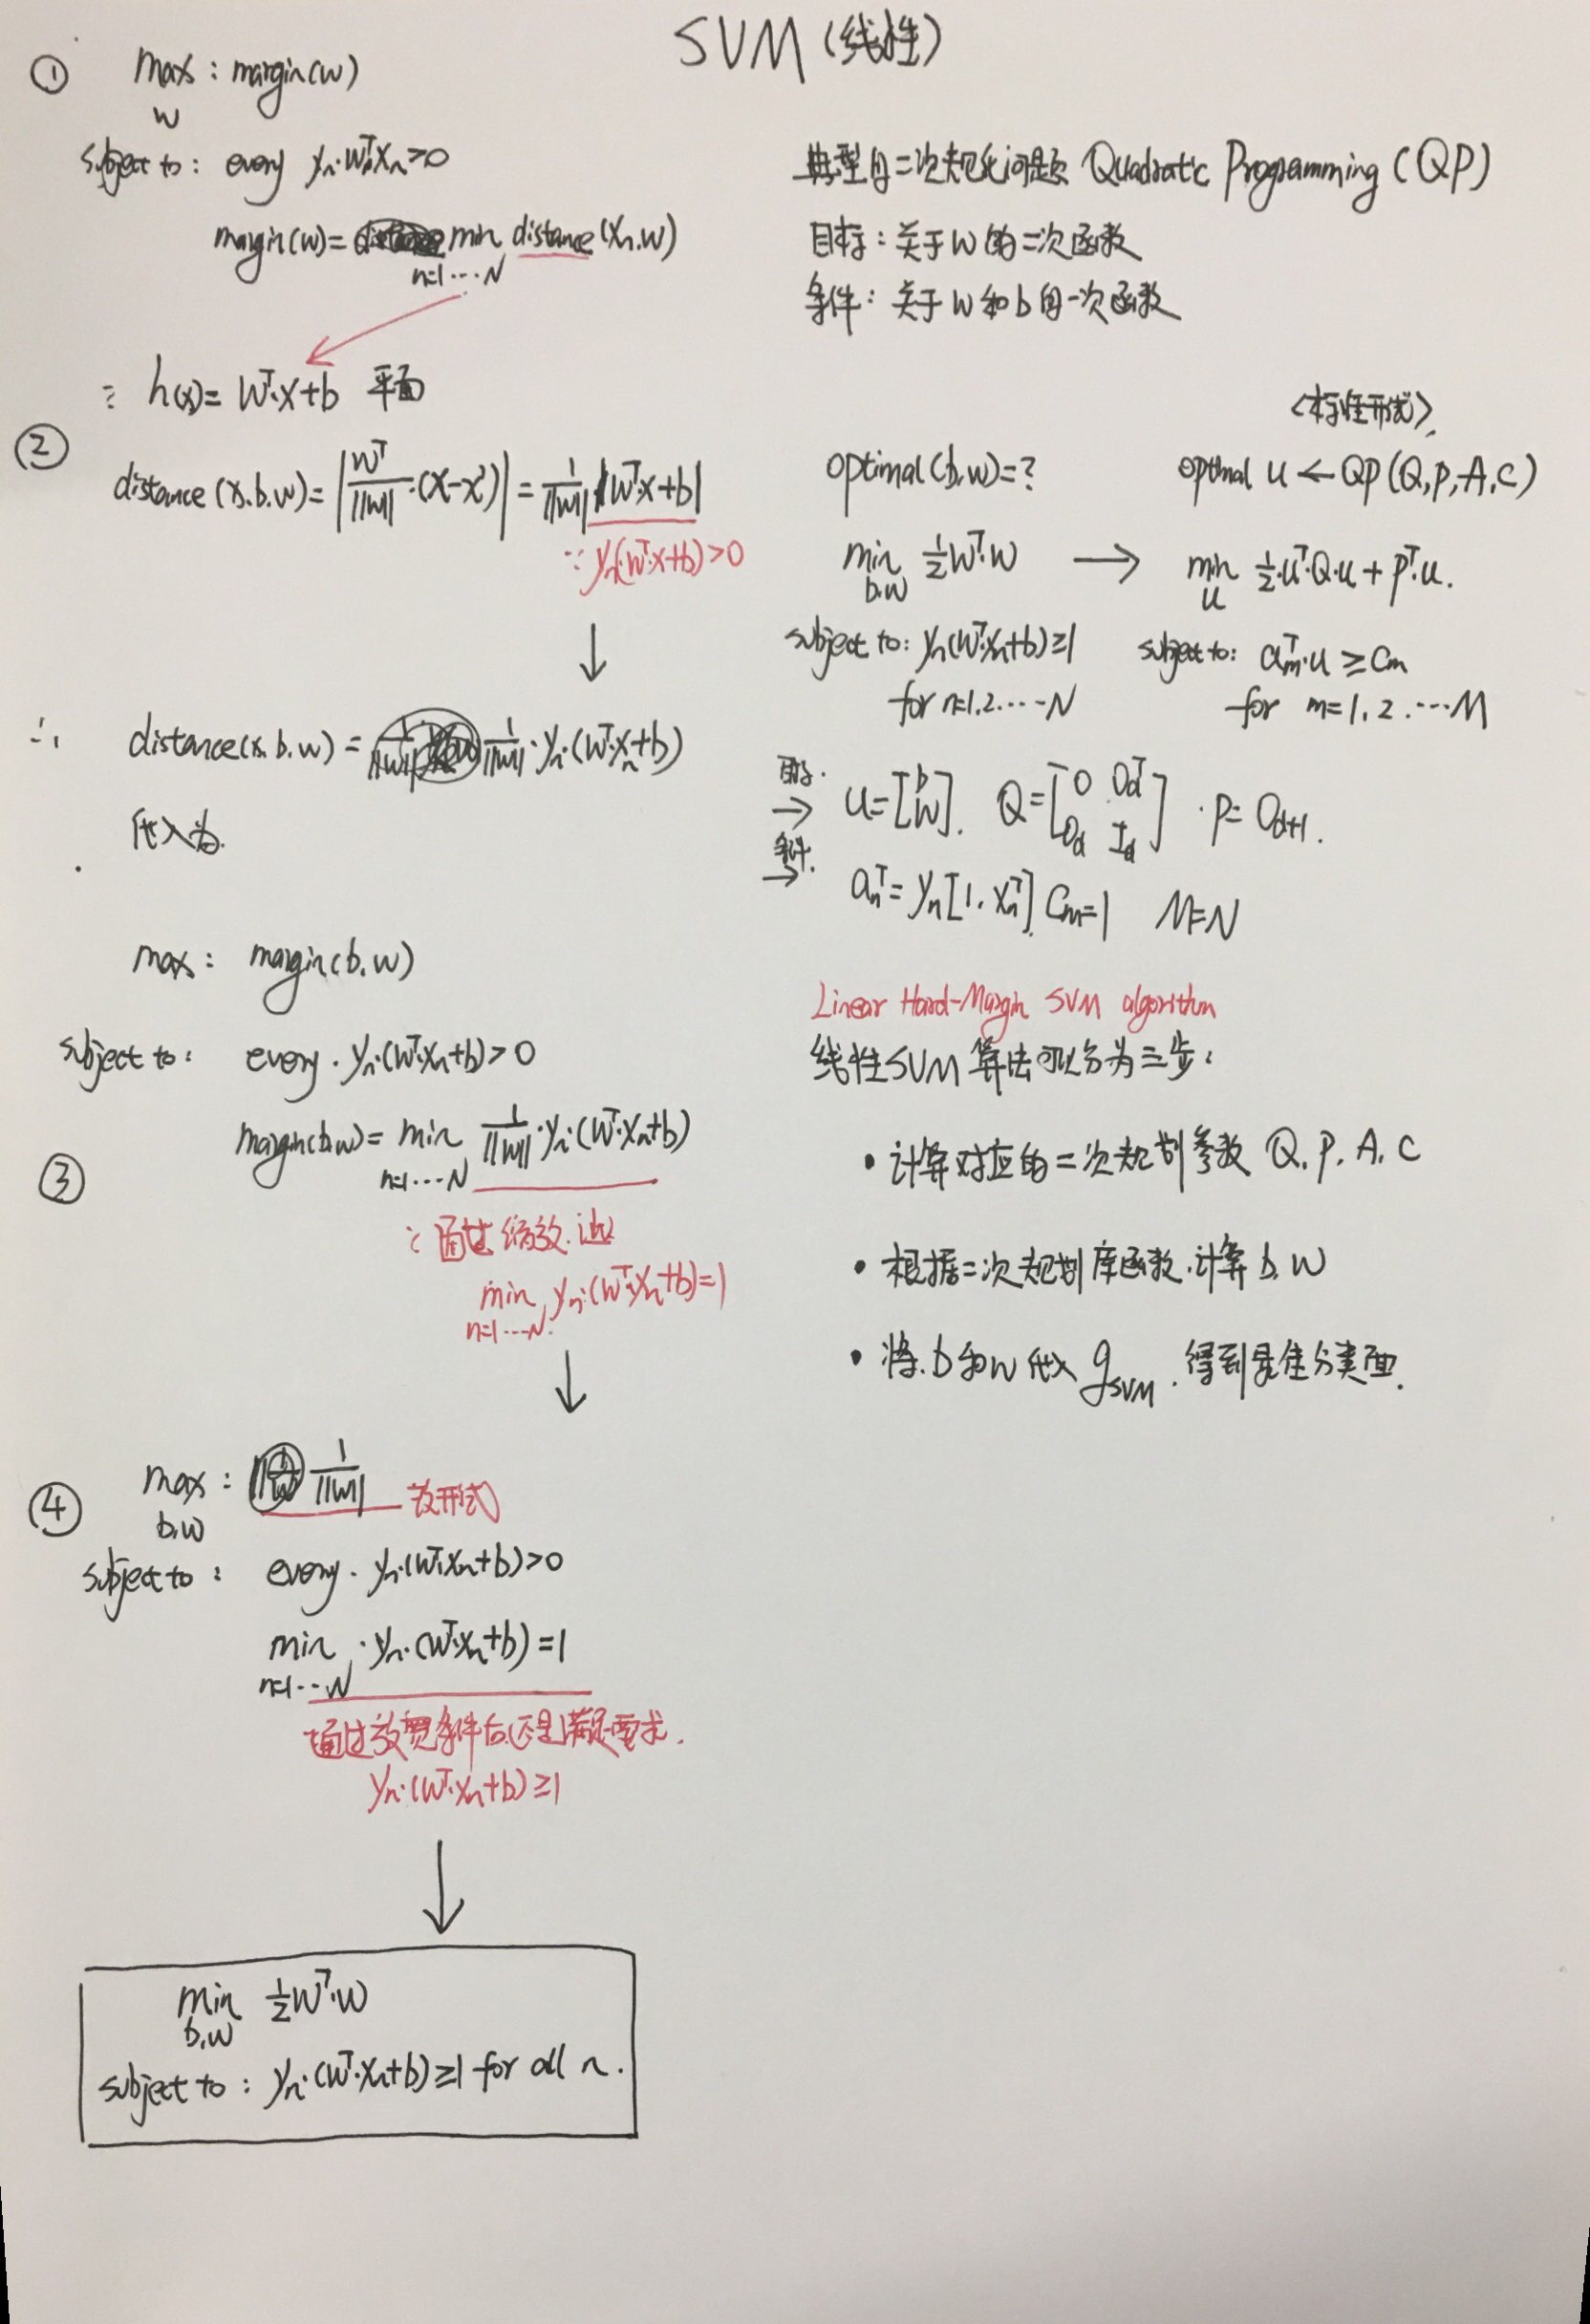 SVM (线性)
① max : margin(w)
w
subject to: every yₙ·wᵀxₙ>0
margin(w)= min distance(xₙ.w)
n=1…N
∵ h(x)= wᵀ·x+b 平面
② distance(x.b.w)= |wᵀ/||w||·(x-x')| = 1/||w|| |wᵀ·x+b|
∵ yₙ(wᵀ·x+b)>0
↓
∴ distance(x.b.w) = 1/||w||·yₙ·(wᵀ·xₙ+b)
代入为.
max : margin(b.w)
subject to: every. yₙ·(wᵀ·xₙ+b)>0
③ margin(b.w)= min 1/||w||·yₙ·(wᵀ·xₙ+b)
n=1…N
∵ 通过缩放.
min yₙ·(wᵀ·xₙ+b)=1
n=1…N.
↓
④ max : 1/||w||
b.w
subject to : every. yₙ·(wᵀ·xₙ+b)>0
min ·yₙ·(wᵀ·xₙ+b)=1
n=1…N
通过放宽条件后还是满足要求.
yₙ·(wᵀ·xₙ+b)≥1
↓
min ½wᵀ·w
b.w
subject to : yₙ·(wᵀ·xₙ+b)≥1 for all n.
典型的二次规化问题 Quadratic Programming (QP)
目标：关于w的二次函数
条件：关于w和b的一次函数
<标准形式>
optimal(b.w)=? optimal u ← QP(Q,P,A,C)
min ½wᵀ·w → min ½·uᵀ·Q·u + Pᵀ·u.
b.w u
subject to: yₙ(wᵀ·xₙ+b)≥1 subject to: aₘᵀ·u ≥ Cₘ
for n=1.2…N for m=1.2.…M
目标. → u=[b w]. Q=[0 0dᵀ 0d Id] ·P= 0d+1.
条件. → aₙᵀ= yₙ[1. xₙᵀ]. Cₘ=1 M=N
Linear Hard-Margin SVM algorithm
线性SVM算法可以分为三步：
• 计算对应的二次规划参数 Q. P. A. C
• 根据二次规划库函数.计算b.w
• 将.b和w代入 gSVM .得到最佳分类面.